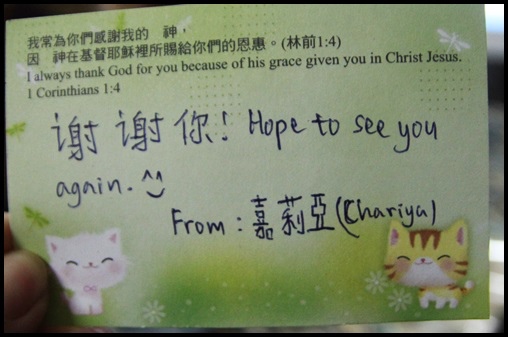 我常為你們感謝我的　神，
因　神在基督耶穌裡所賜給你們的恩惠。(林前1:4)
I always thank God for you because of his grace given you in Christ Jesus.
1 Corinthians 1:4
谢谢你! Hope to see you
again. ^^
From : 嘉莉亞 (Chariya)